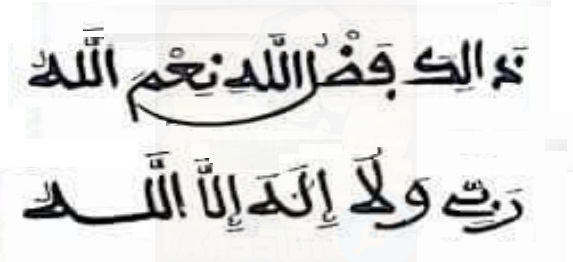 ذَالِكَ فَضْلُ اللَّهِ نِعْمَ اللَّهُ
رَبِّي وَلَا إِلَهَ إِلَّا اللَّهُ